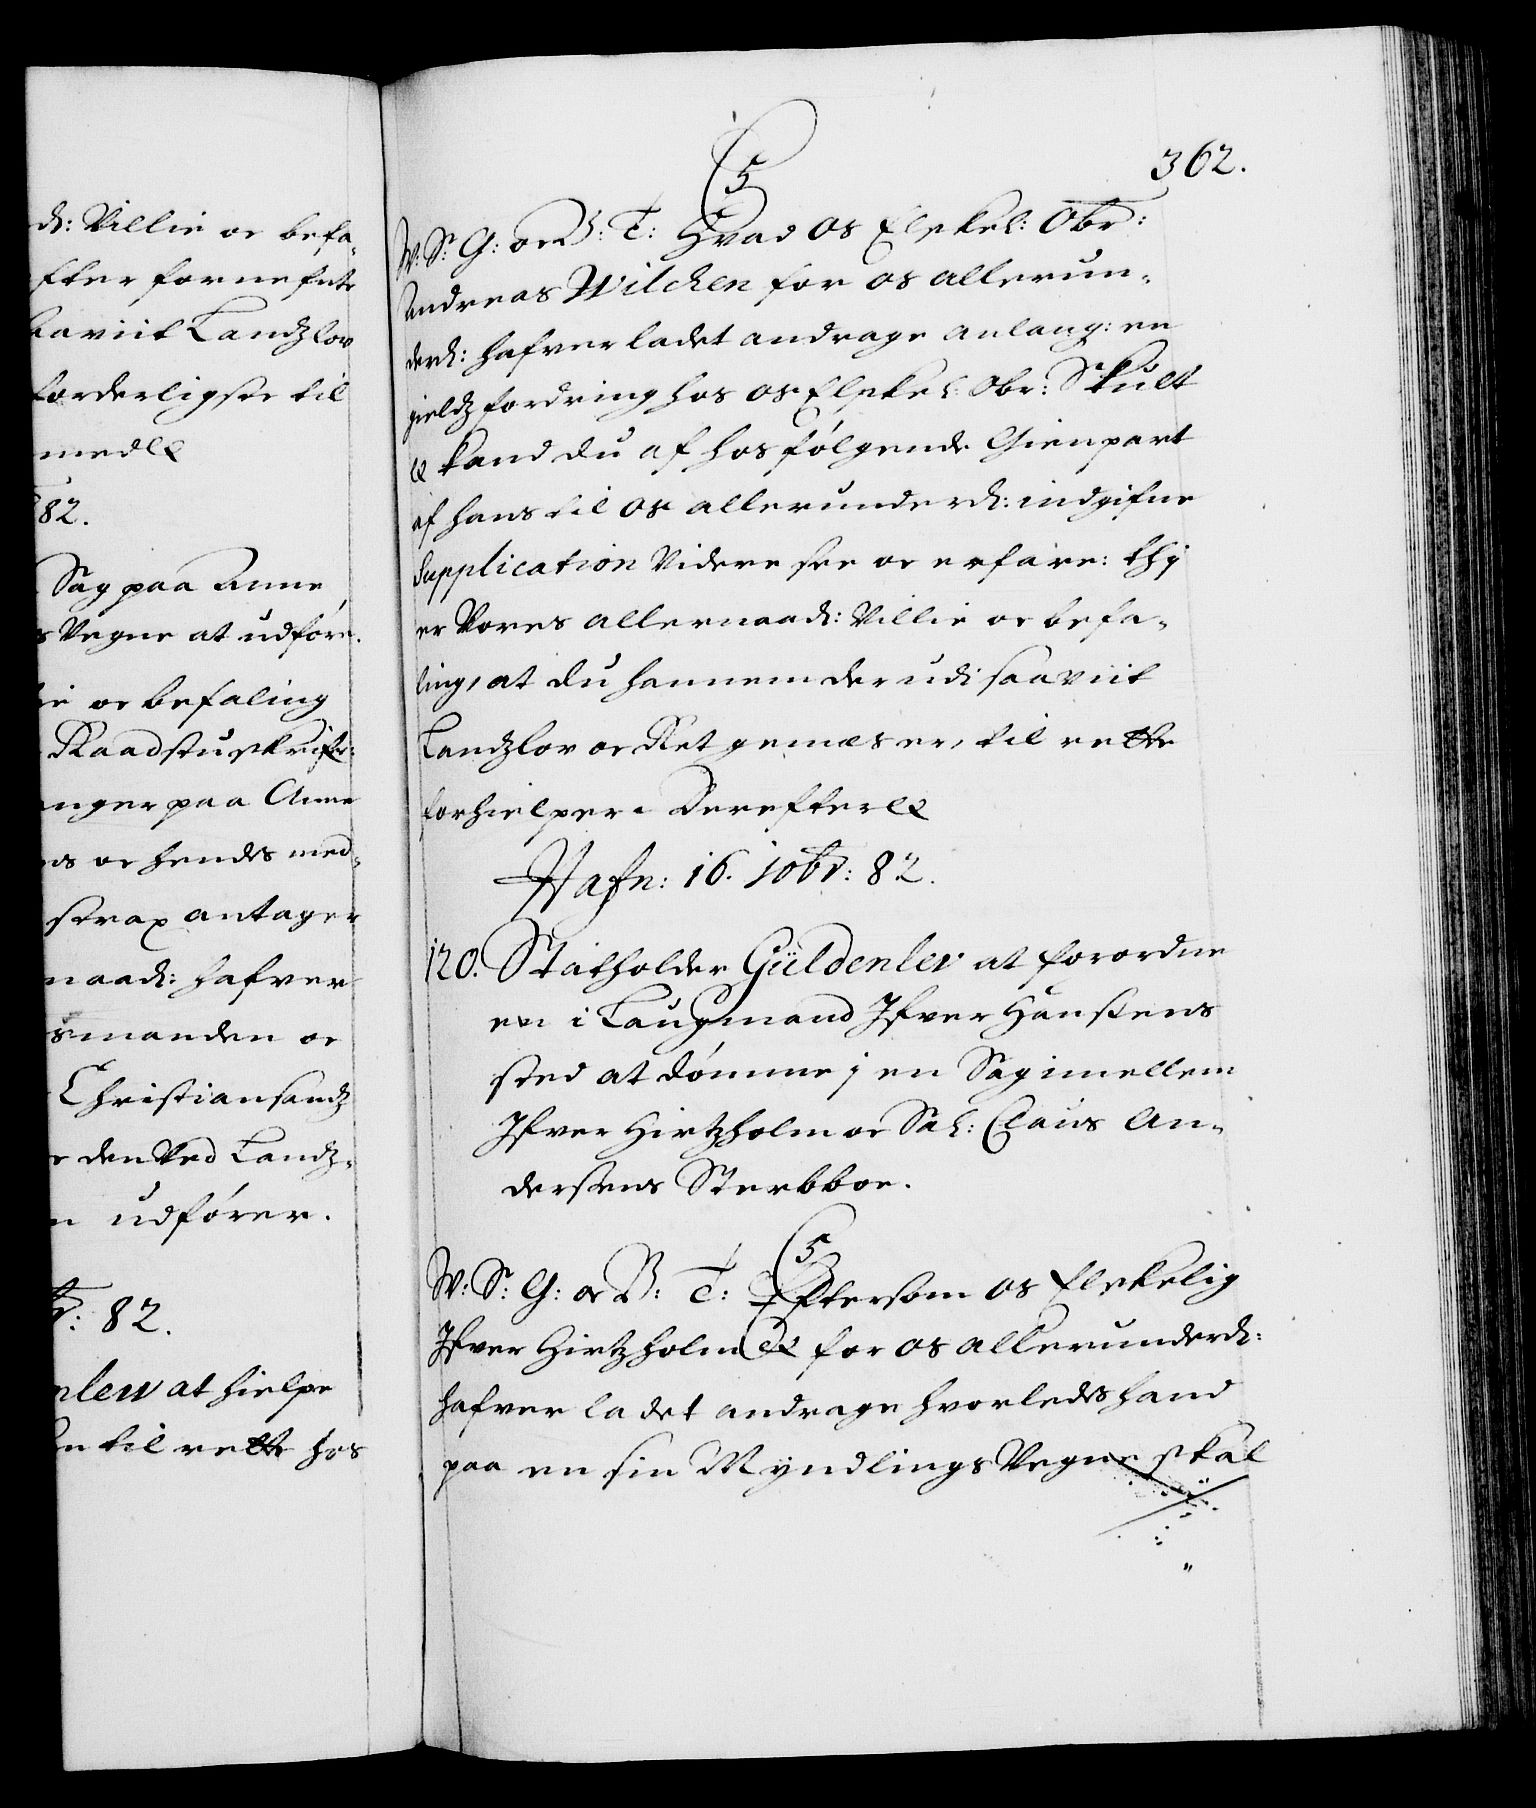 d: Villie oc befa-
fter fornefnte
saaviit Landzlov
forderligste til
medEtc
82.
Sag paa Anne
s Vegne at udføre.
ie oc befaling
Raadstuskrifr:
nger paa Anne
ns oc hendes med-
strax antager
naad: hafver
smanden oc
Christiansandz
e den Ved Landz-
n udfører.
br: 82.
nlew at hielpe
en til rette hos
362.
C5
W: S: G: oc B: T: Hvad Os Elskel: Obr:
Andreas Wilchen for os allerun-
derd: hafver ladet andrage anlang: en
gieldz fordring hos os Elskel: Obr: Skult
Etc kand du af hosfølgende Gienpart
af hans til os allerunderd: indgifne
Supplication Videre see oc erfare: thj
er Vores allernaad: Villie oc befa-
ling, at du hannem derudi saaviit
Landzlov oc Ret gemæs er, til rette
forhielper. DerefterEtc
Hafn: 16. 10br: 82.
120. Statholder Güldenlev at forordne
en i Laugmand Ifver Hansens
sted at dømme j en Sag imellem
Ifver Hirtzholm oc Sal: Claus An-
dersens Sterbboe.
C5
W: S: G: oc B: T: Eftersom os Elskelig
Ifver Hirtzholm Etc for os allerunderd:
hafver ladet andrage hvorledes hand
paa en sin Myndlings Vegne skal